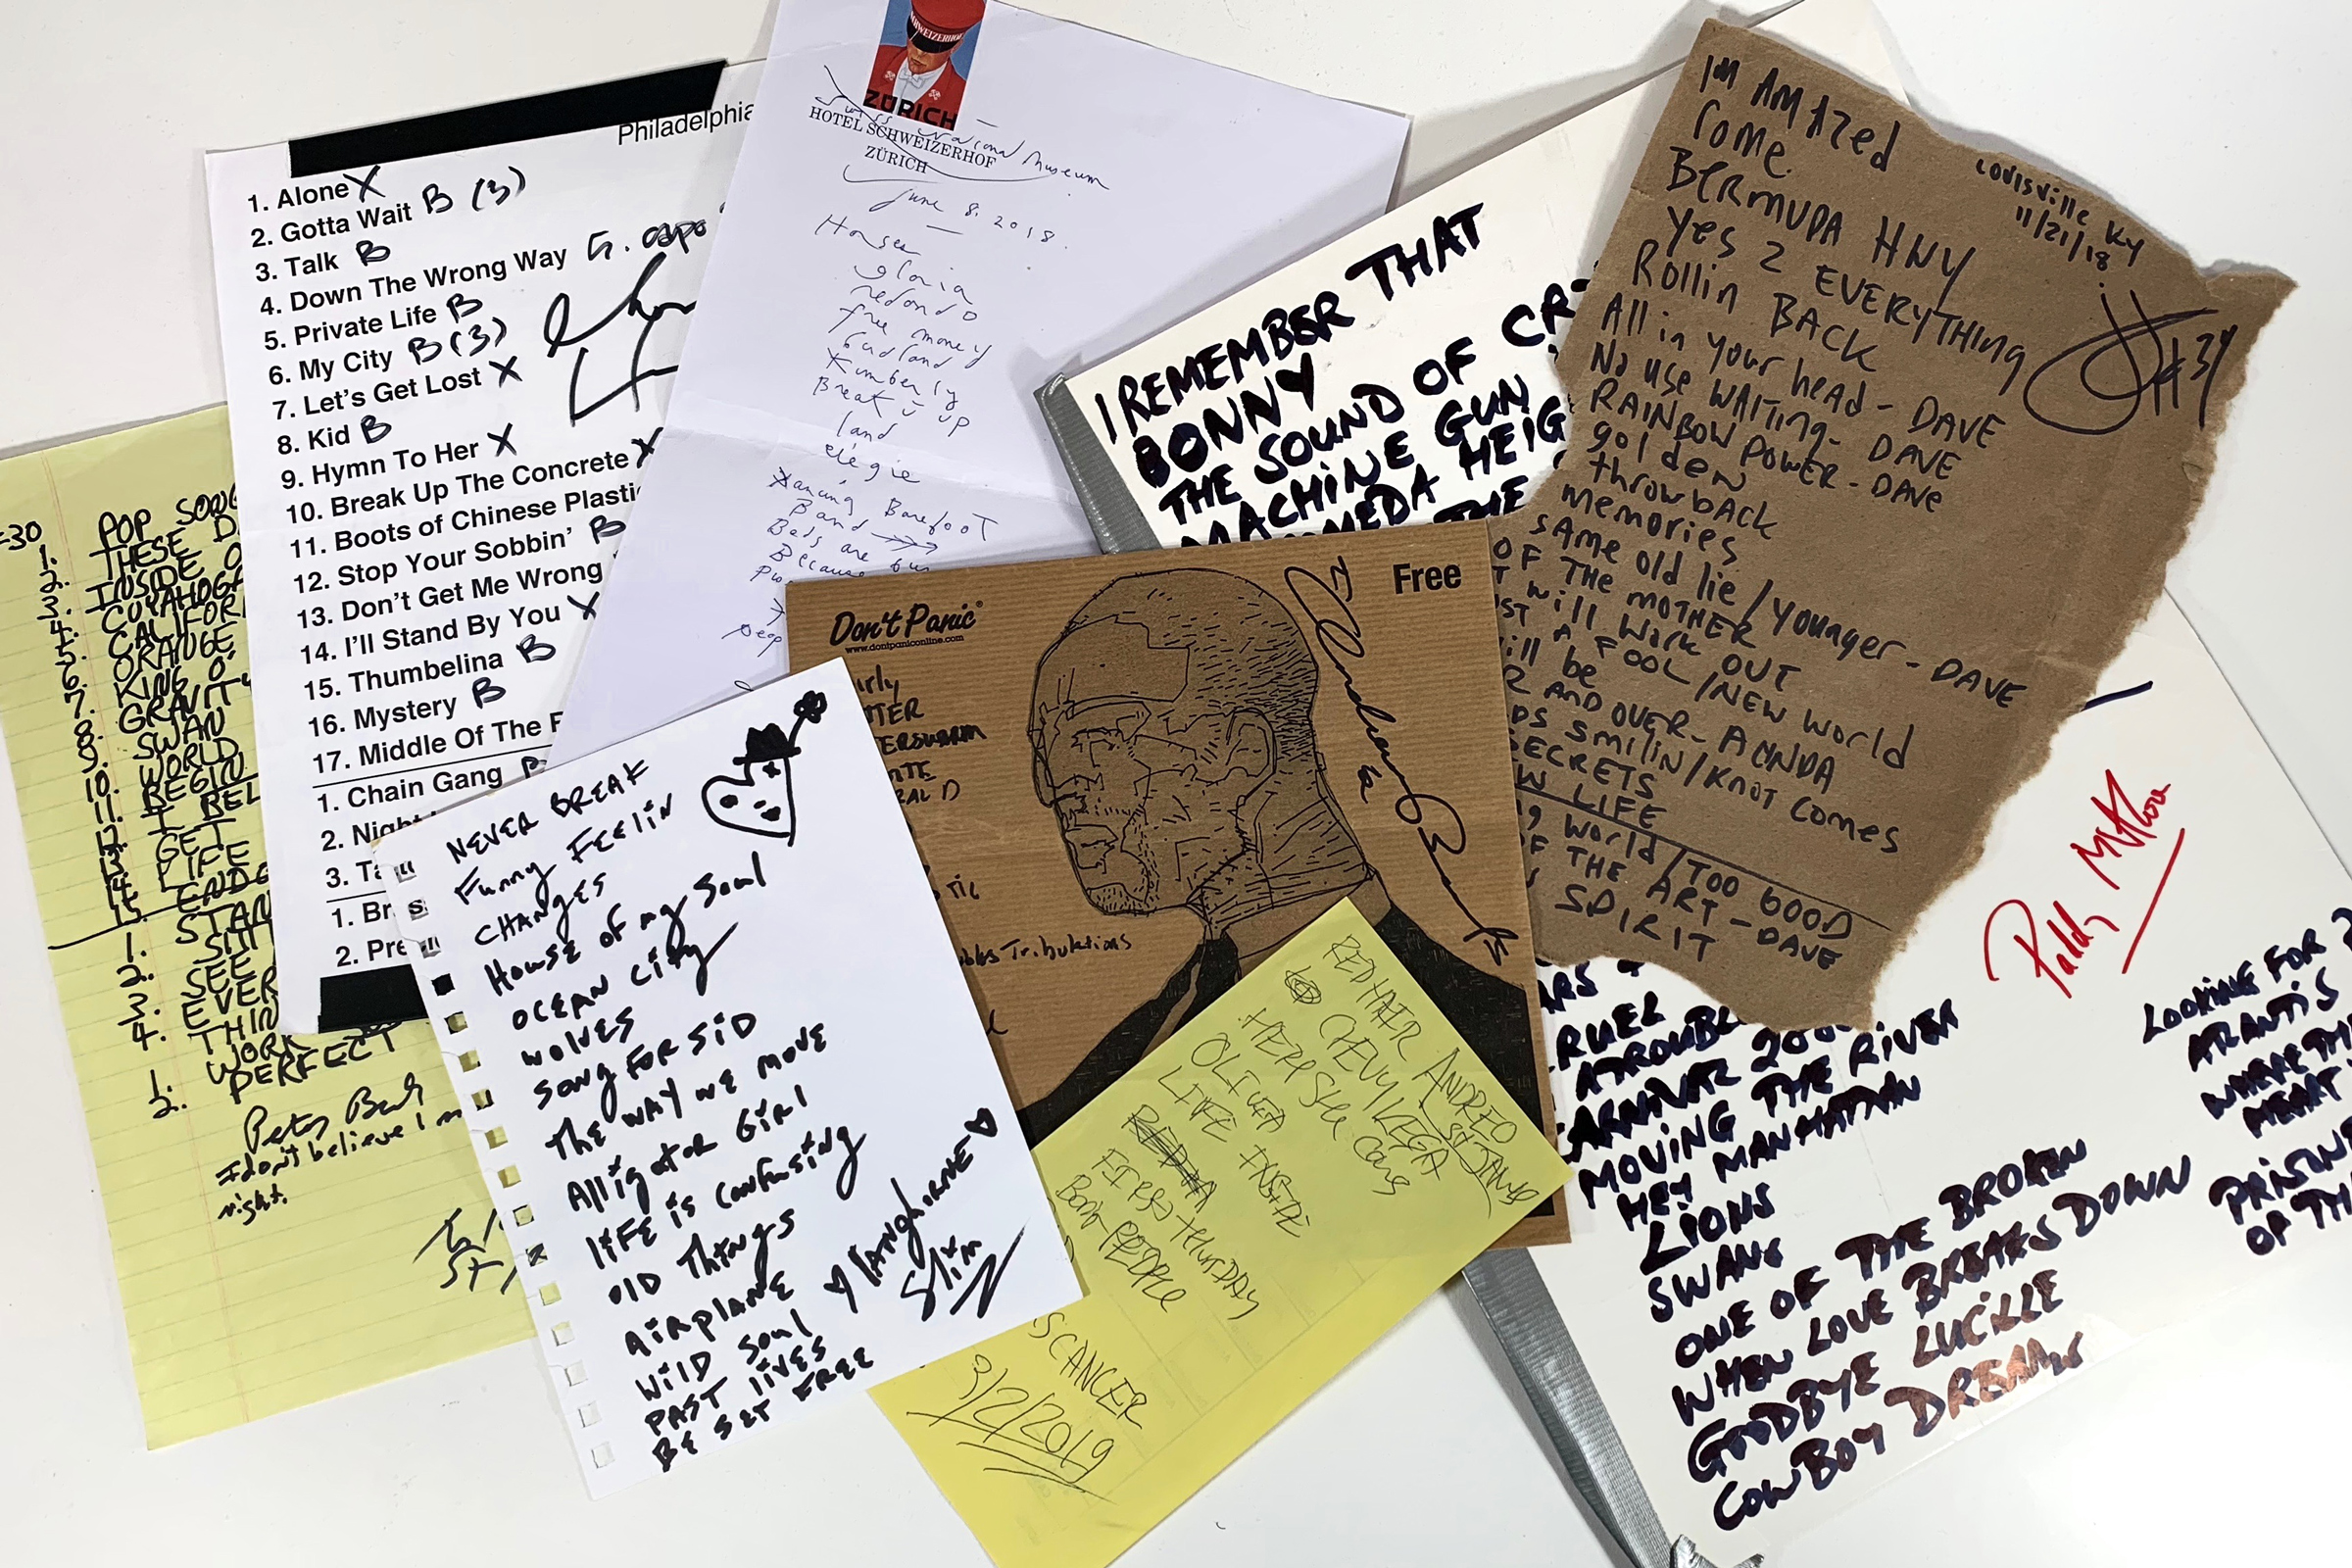 =30
POP SONG
1. THESE D
2. INSIDE O
3. CUYAHOGA
4. CALIFOR
5. ORANGE
6. KING O'
7. GRAVITY
8. SWAN
9. WORLD
10. BEGIN
11. I BEL
12. GET
13. LIFE
14. ENDG
15. STAN
1. SITT
2. SEE
3. EVER
4. THIN
1. WORK
2. PERFECT
Peter Buck
I don't believe I
night.
Philadelphia
1. Alone X
2. Gotta Wait B (3)
3. Talk B
4. Down The Wrong Way G. capo
5. Private Life B
6. My City B (3)
7. Let's Get Lost X
8. Kid B
9. Hymn To Her X
10. Break Up The Concrete X
11. Boots of Chinese Plastic
12. Stop Your Sobbin' B
13. Don't Get Me Wrong
14. I'll Stand By You X
15. Thumbelina B
16. Mystery B
17. Middle Of The
1. Chain Gang B
2. Night
3. Ta
1. Brass
2. Pre
SCHWEIZERHOF
ZÜRICH
Swiss National Museum
HOTEL SCHWEIZERHOF
ZÜRICH
June 8. 2018.
Horses
gloria
redondo
free money
birdland
Kimberly
Break it up
land
elegie
Dancing Barefoot
Band
Beds are bur
Because
Peop
I REMEMBER THAT
BONNY
THE SOUND OF CR
MACHINE GUN
MEDA HEIG
THE
I'm AMAzed
Come
BERMUDA HWY
Yes 2 EVERYTHIng
Rollin BACK
All in your head - DAVE
No use WAITing - DAVE
RAINBOW POWER - DAVE
golden
throwbACK
memories
SAME old lie / Younger - DAVE
OF THE MOTHER
T will Work OUT
ST A FOOL / NEW World
ill be
R AND OVER - AMNDA
DS SMILIN / KNOT COMES
SECRETS
W LIFE
ng world / TOO GOOD
OF THE ART - DAVE
SPIRIT
Louisville KY
11/21/18
Don't Panic
www.dontpaniconline.com
Free
Tribulations
NEVER BREAK
Funny Feelin
CHANGES
House of my Soul
OCEAN CITY
WOLVES
SONG FOR SID
The WAY WE MOVE
Alligator Girl
LIFE is Confusing
OLD THINGS
AIRPLANE
WILD SOUL
PAST LIVES
BE SET FREE
LANGHORNE
Slim
RED HAER
ANDREO
ST JAMES
CHEVY KEGA
HERR See Cons
OLFUEA
LIFE INSIDE
FIRST TelurDAY
Boat PEOPLE
SCANCER
3/2/2019
Paddy McAloon
ARS
RUEL
A TROUBL
CARNIVAL 2000
MOVING THE RIVER
HEY MANHATTAN
LIONS
SWANS
ONE OF THE BROKEN
WHEN LOVE BREAKS DOWN
GOODBYE LUCILLE
COWBOY DREAMS
LOOKING FOR
ATLANTIS
WHERE THE
HEART
PRISONE
OF THE